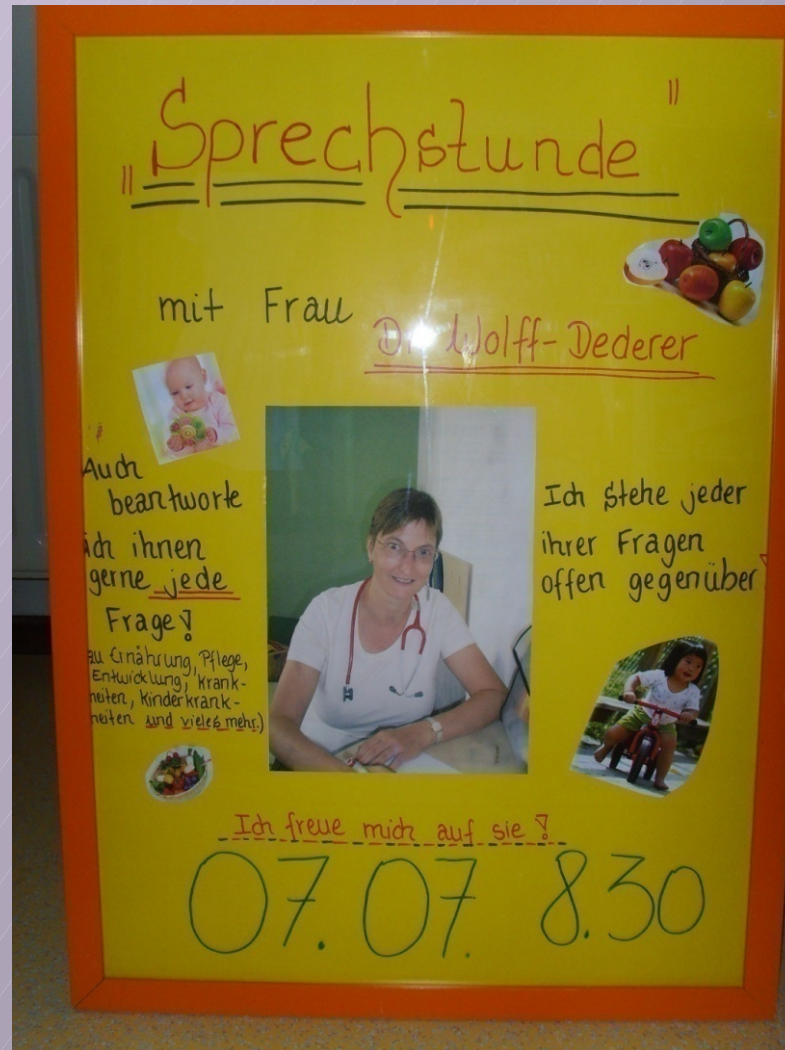 „Sprechstunde"
mit Frau
Dr. Wolff-Dederer
Auch
beantworte
ich ihnen
gerne jede
Frage!
zu Ernährung, Pflege,
Entwicklung, Krank-
heiten, Kinderkrank-
heiten und vieles mehr.)
Ich stehe jeder
ihrer Fragen
offen gegenüber!
Ich freue mich auf sie!
07.07. 8.30